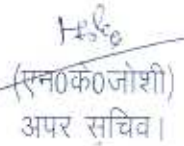 (एन0के0जोशी)
अपर सचिव।